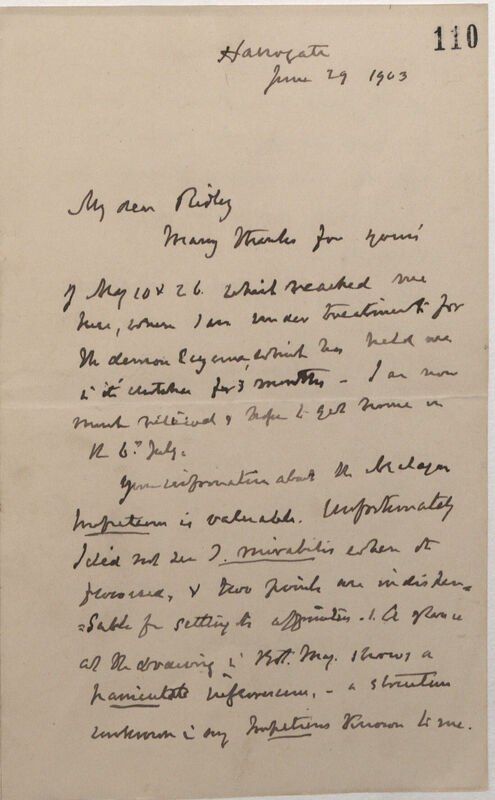 110
Harrogate
June 29 1903
My dear Ridley
Many thanks for yours
of May 10 & 26 which reached me
here, where I am under treatment for
the demon Eczema, which has held me
in its clutches for 3 months - I am now
much relieved & hope to get home on
the 6th July.
Your information about the Malayan
Impatiens is valuable. Unfortunately
I did not see I. mirabilis when it
flowered, & two points are indispen=
=sable for settling its affinities. 1. A glance
at the drawing in Bot. Mag. shows a
paniculate inflorescence, - a structure
unknown in any Impatiens known to me.